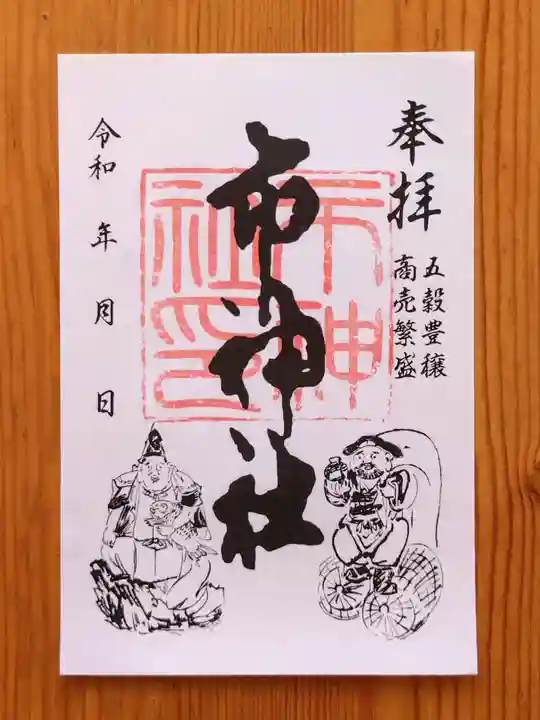 奉拝
五穀豊穣
商売繁盛
市神社
市神
社印
令和 年 月 日